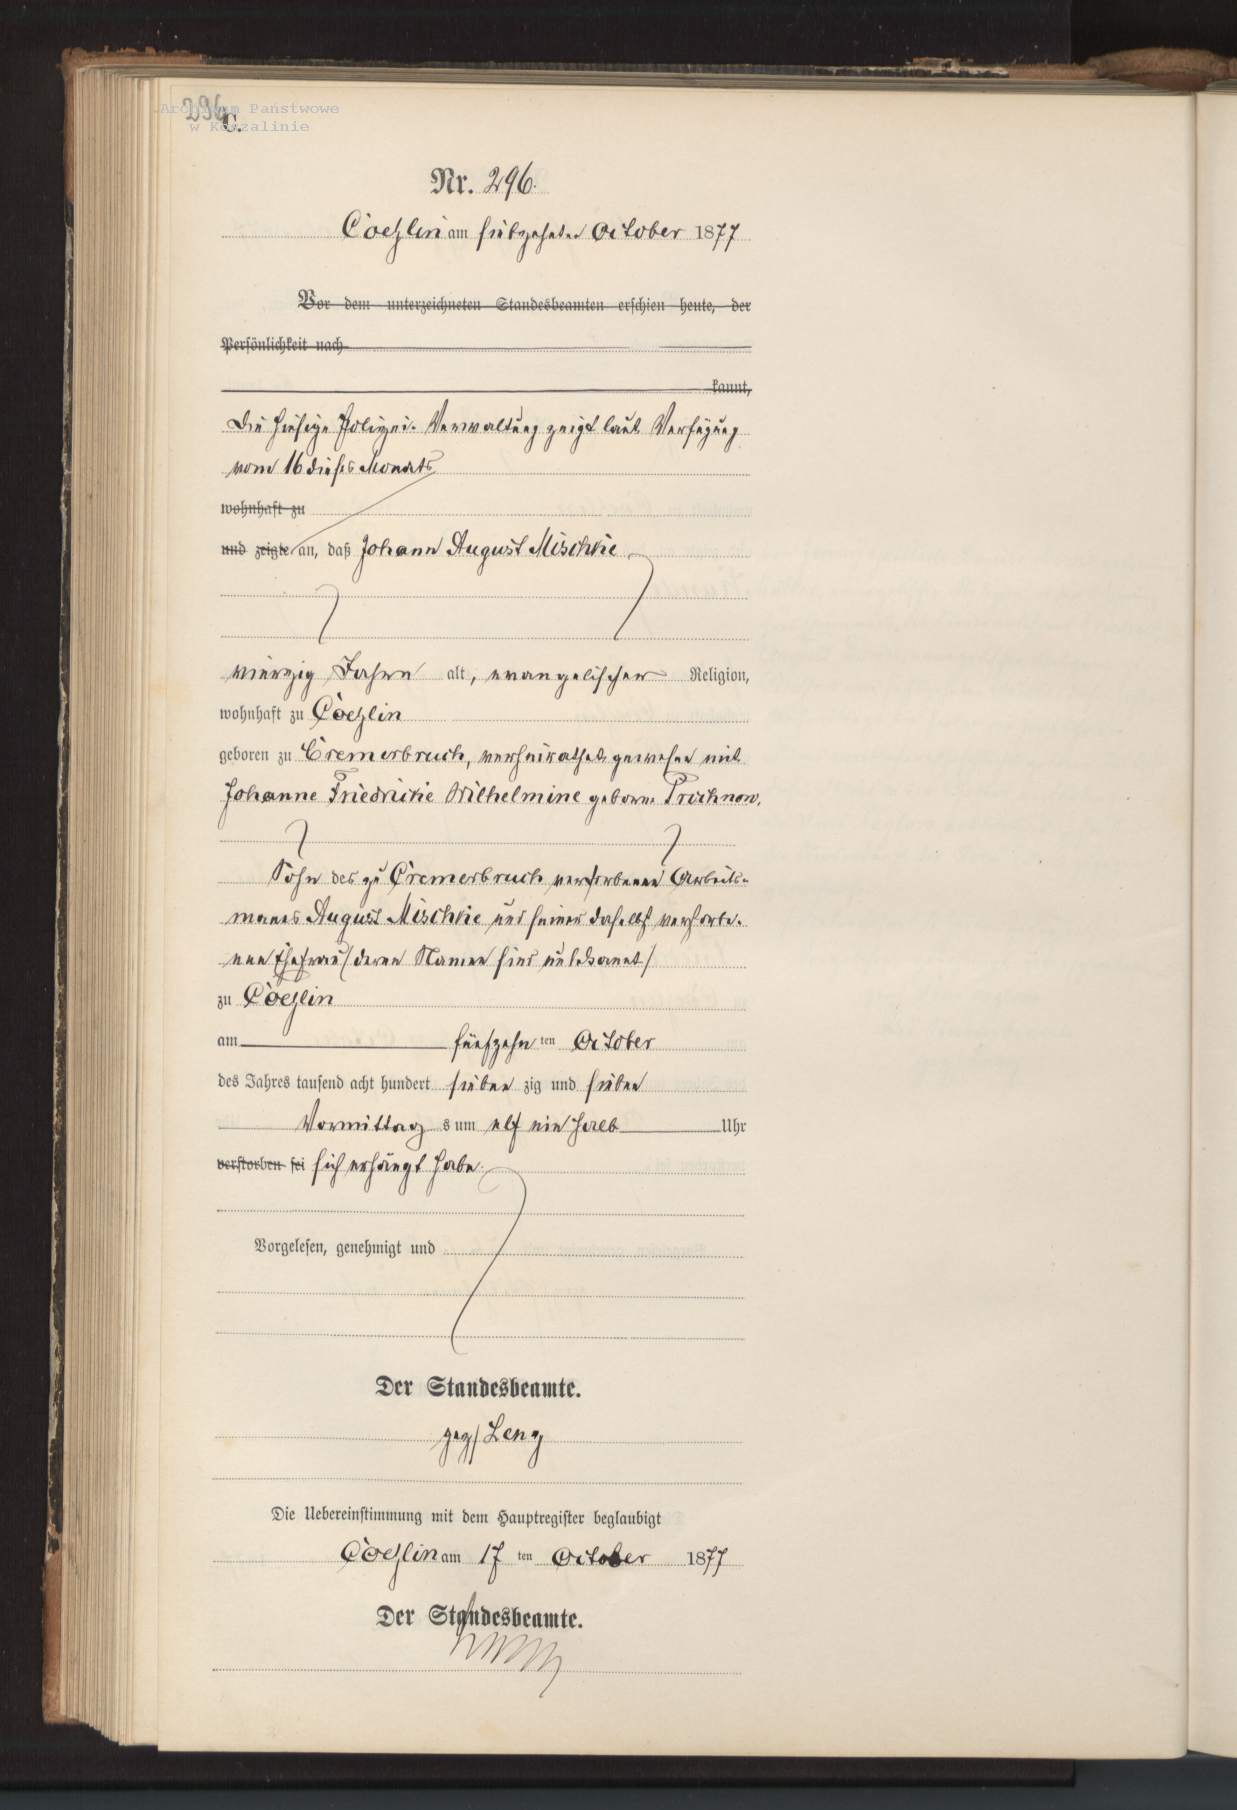 296
Archiwum Państwowe
w Koszalinie
C.
Nr. 296.
Coeslin am siebzehnten October 1877
Vor dem unterzeichneten Standesbeamten erschien heute, der
Persönlichkeit nach
kannt,
Die hiesige Polizei-Verwaltung zeigt laut Verfügung
vom 16 dieses Monats
wohnhaft zu
und zeigte an, daß Johann August Mischke
vierzig Jahre alt, evangelischer Religion,
wohnhaft zu Coeslin
geboren zu Cremerbruch, verheirathet gewesen mit
Johanne Friedricke Wilhelmine geborne
Sohn des zu Cremerbruch verstorbenen Arbeits-
mannes August Mischke und seiner daselbst verstorbe-
nen Ehefrau /deren Namen sind unbekannt/
zu Coeslin
am fünfzehn ten October
des Jahres tausend acht hundert sieben zig und sieben
Vormittag s um elf ein halb Uhr
verstorben sei sich erhängt habe.
Vorgelesen, genehmigt und
Der Standesbeamte.
gez/ Leng
Die Uebereinstimmung mit dem Hauptregister beglaubigt
Coeslin am 17 ten October 1877
Der Standesbeamte.